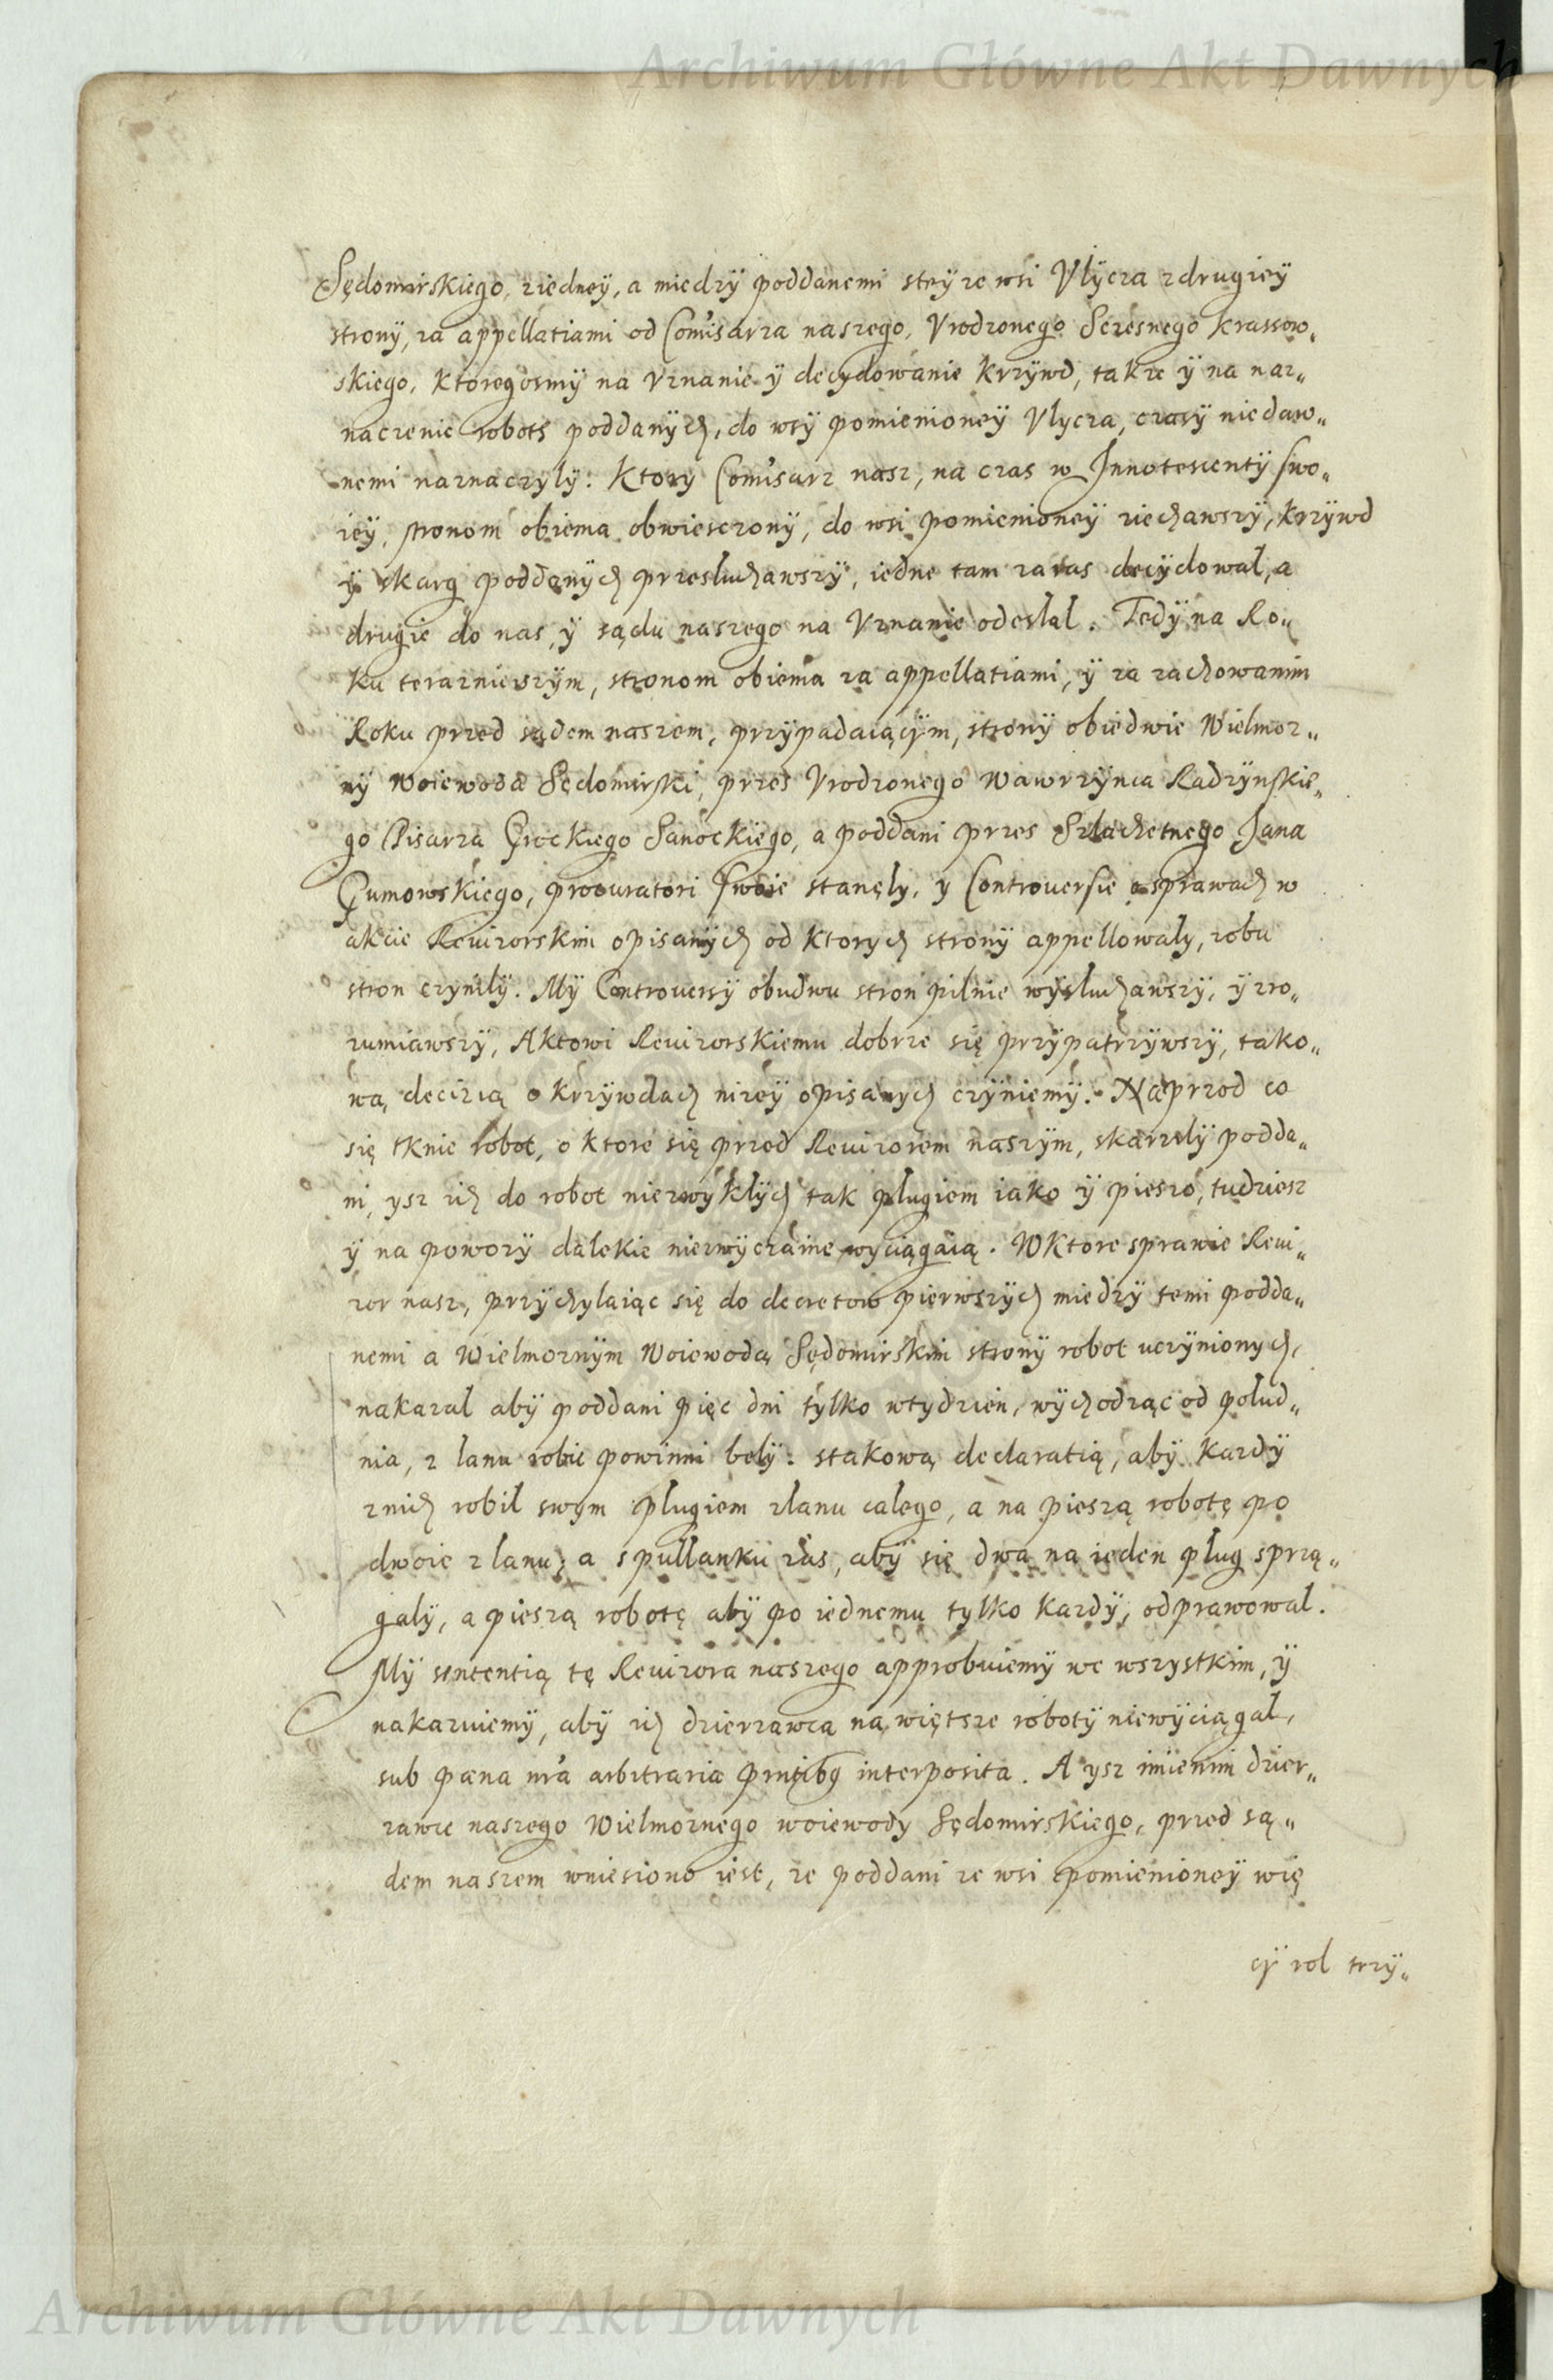 Archiwum Główne Akt Dawnych
Sędomirskiego, ziedney, a miedzÿ poddanemi steÿ ze wsi Vlÿcza zdrugieÿ
stronÿ, za appellatiami od Comisarza naszego, Vrodzonego Sczesnego Krassow„
skiego, ktoregosmÿ na vznanie ÿ decydowanie krzÿwd, takze ÿ na naz„
naczenie robots poddanÿch, do wsÿ pomienioneÿ Vlycza, czasÿ niedaw„
nemi naznaczylÿ: Ktory Comisarz nasz, na czas w Innotescentÿ swo„
ieÿ, stronom obiema obwiesczonÿ, do wsi pomienioneÿ ziechawszÿ, krzÿwd
ÿ skarg poddanÿch przesluchawszÿ, iedne tam zaras decÿdowal, a
drugie do nas ÿ sądu naszego na vznanie odeslal. Tedÿ na Ro„
ku teraznieiszÿm, stronom obiema za appellatiami, ÿ za zachowanim
Roku przed sądem naszem, przÿpadaiącÿm, stronÿ obiedwie Wielmoz„
nÿ Woiewoda Sędomirski, przes Vrodzonego Wawrzÿnca Radzÿnskie„
go Pisarza Grockiego Sanockiego, a poddani przes Szlachetnego Jana
Gumowskiego, procuratori swoie stanęly, y Controuersie o sprawach w
akcie Reuizorskim opisanÿch od ktorych stronÿ appellowaly, zobu
stron czynilÿ. Mÿ Controuersÿ obudwu stron pilnie wÿsluchawszÿ, ÿ zro„
zumiawszÿ, Aktowi Reuizorskiemu dobrze się przÿpatrzÿwszÿ, tako„
wą decizią o krzÿwdach nizeÿ opisanych czÿniemÿ. Naprzod co
się tknie robot, o ktore się przed Reuizorem naszÿm, skarzelÿ podda„
ni, ysz ich do robot niezwÿklÿch tak plugiem iako ÿ pieszo, tudziesz
ÿ na powozÿ dalekie niezwÿczaine wyciągaią. W ktore sprawie Reui„
zor nasz, przÿchylaiąc się do decretow pierwszÿch miedzÿ temi podda„
nemi a Wielmoznÿm Woiewodą Sędomirskim stronÿ robot uczÿnionych,
nakazal abÿ poddani pięc dni tylko wtydzien, wÿchodząc od polud„
nia, z lanu robic powinni belÿ: stakową declaratią, abÿ kazdÿ
znich robil swym plugiem zlanu calego, a na pieszą robotę po
dwoie z lanu; a spullanku zas, abÿ się dwa na ieden plug sprzą„
galÿ, a pieszą robotę abÿ po iednemu tylko kazdÿ, odprawowal.
Mÿ sententią tę Reuizora naszego approbuiemÿ we wszystkim, ÿ
nakazuiemÿ, abÿ ich dzierzawca na więtsze robotÿ niewÿciągal,
sub pæna nra arbitraria pntibq interposita. A ysz imienim dzier„
zawce naszego Wielmoznego woiewody Sędomirskiego, przed są„
dem naszem wniesiono iest, ze poddani ze wsi pomienioneÿ wię
cÿ rol trzÿ„
Archiwum Główne Akt Dawnych